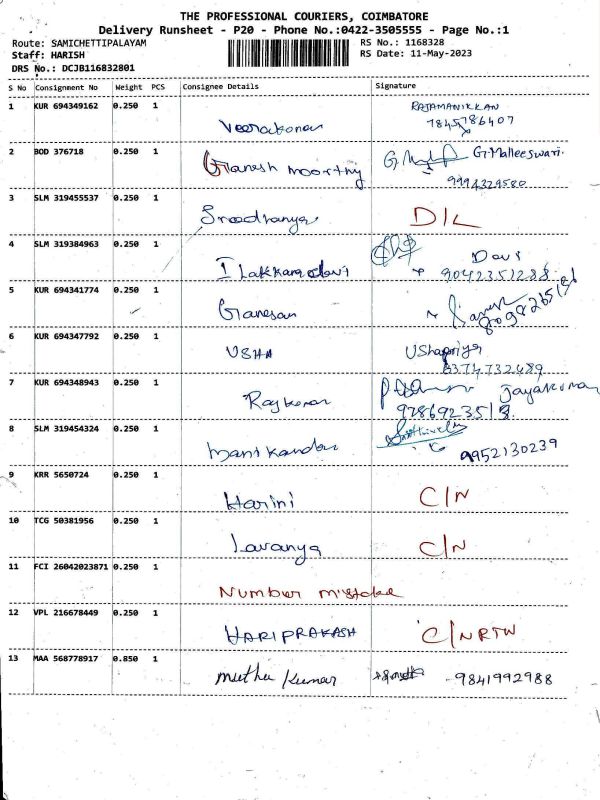 THE PROFESSIONAL COURIERS, COIMBATORE
Delivery Runsheet - P20 - Phone No.:0422-3505555 - Page No.:1
Route: SAMICHETTIPALAYAM RS No.: 1168328
Staff: HARISH RS Date: 11-May-2023
DRS No.: DCJB116832801
S No Consignment No Weight PCS Consignee Details Signature
1 KUR 694349162 0.250 1 Veerakonar RAJAMANIKKAN
7845786407
2 BOD 376718 0.250 1 Ganesh moorthy G. Malleeswari.
9994329580
3 SLM 319455537 0.250 1 Sreedhanya D/L
4 SLM 319384963 0.250 1 Devi
9042351288
5 KUR 694341774 0.250 1 Ganesan
8098265136
6 KUR 694347792 0.250 1 USHA UShapriya
8374732489
7 KUR 694348943 0.250 1 Rajkumar Jayakumar
9786923518
8 SLM 319454324 0.250 1 manikandan
9952130239
9 KRR 5650724 0.250 1 Harini C/N
10 TCG 50381956 0.250 1 Lavanya C/N
11 FCI 26042023871 0.250 1 Number mistake
12 VPL 216678449 0.250 1 HARIPRAKASH C/N RTW
13 MAA 568778917 0.850 1 muthu kumar 9841992988